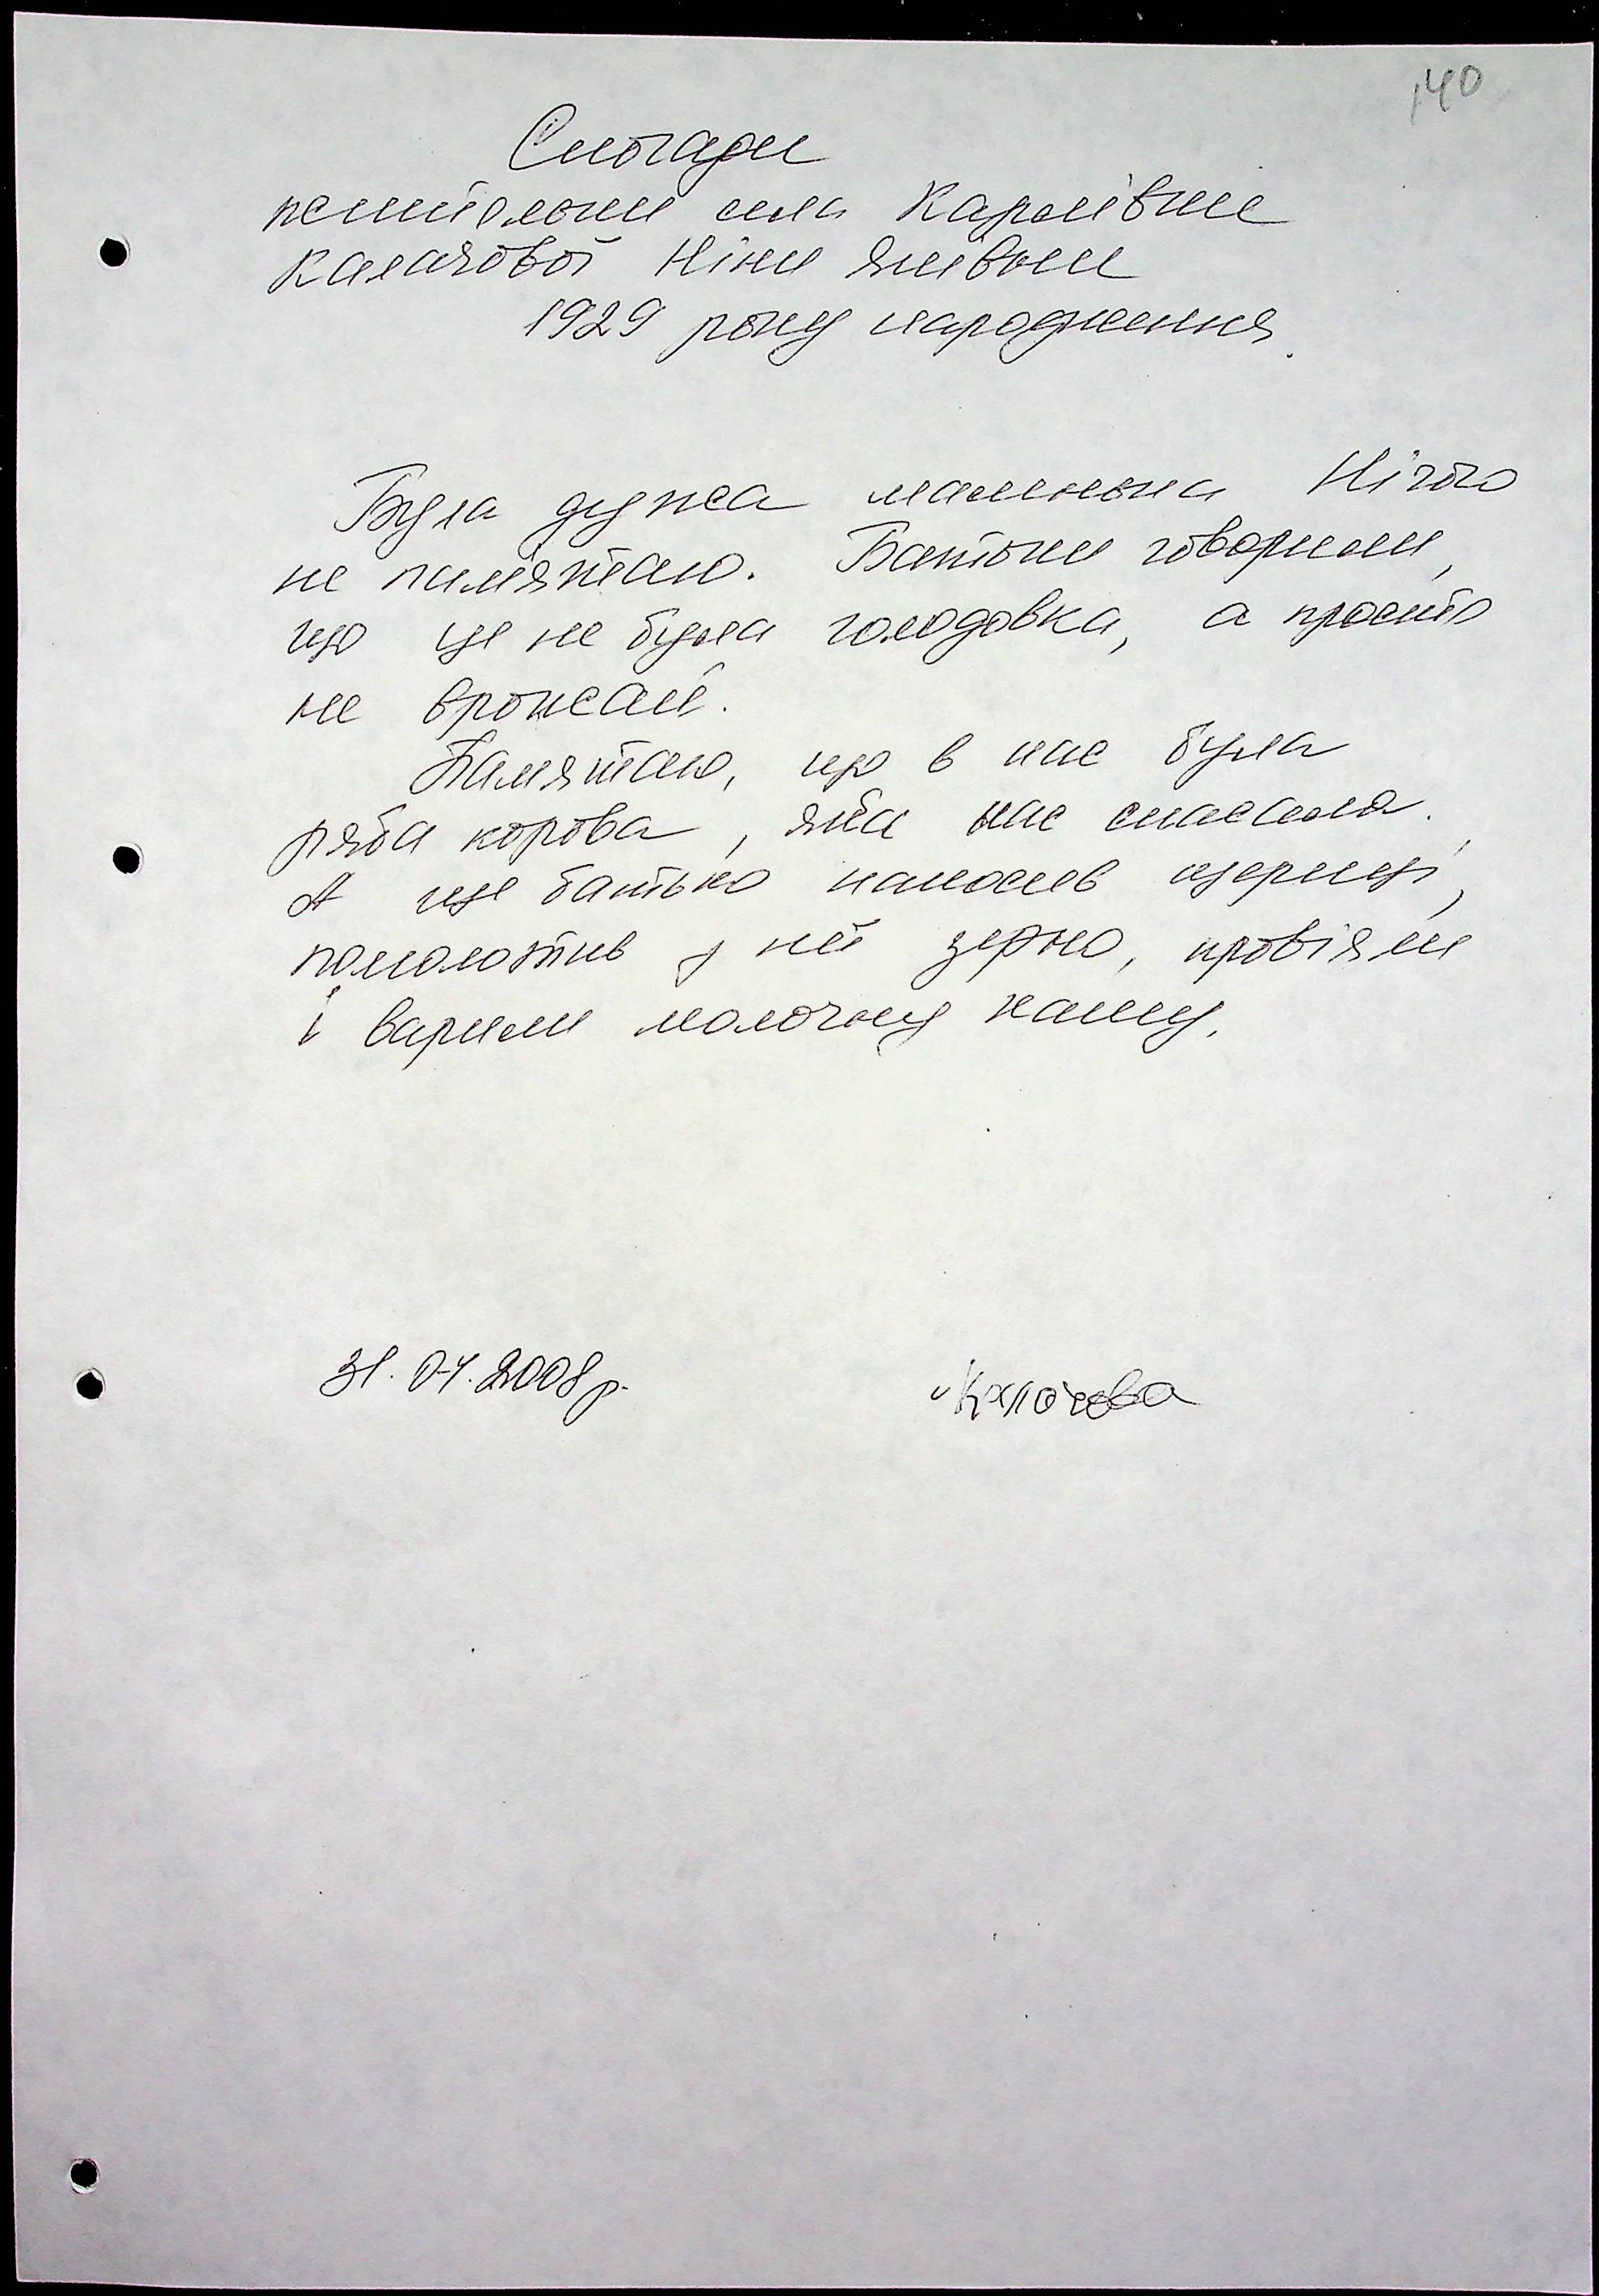 140
Спогади
жительки села Карпівне
Калачової Ніни Яківни
1929 року народження.
Була дужа маленька Нічого
не памʼятаю. Батьки говорили,
що це не була голодовка, а просто
не врожай.
Памятаю, що в нас була
ряба корова, яка нас спасала.
А ще батько наносив щериці,
помолотив з неї зерно, провіяли
і варили молочну кашу.
31.07.2008р. Калачова